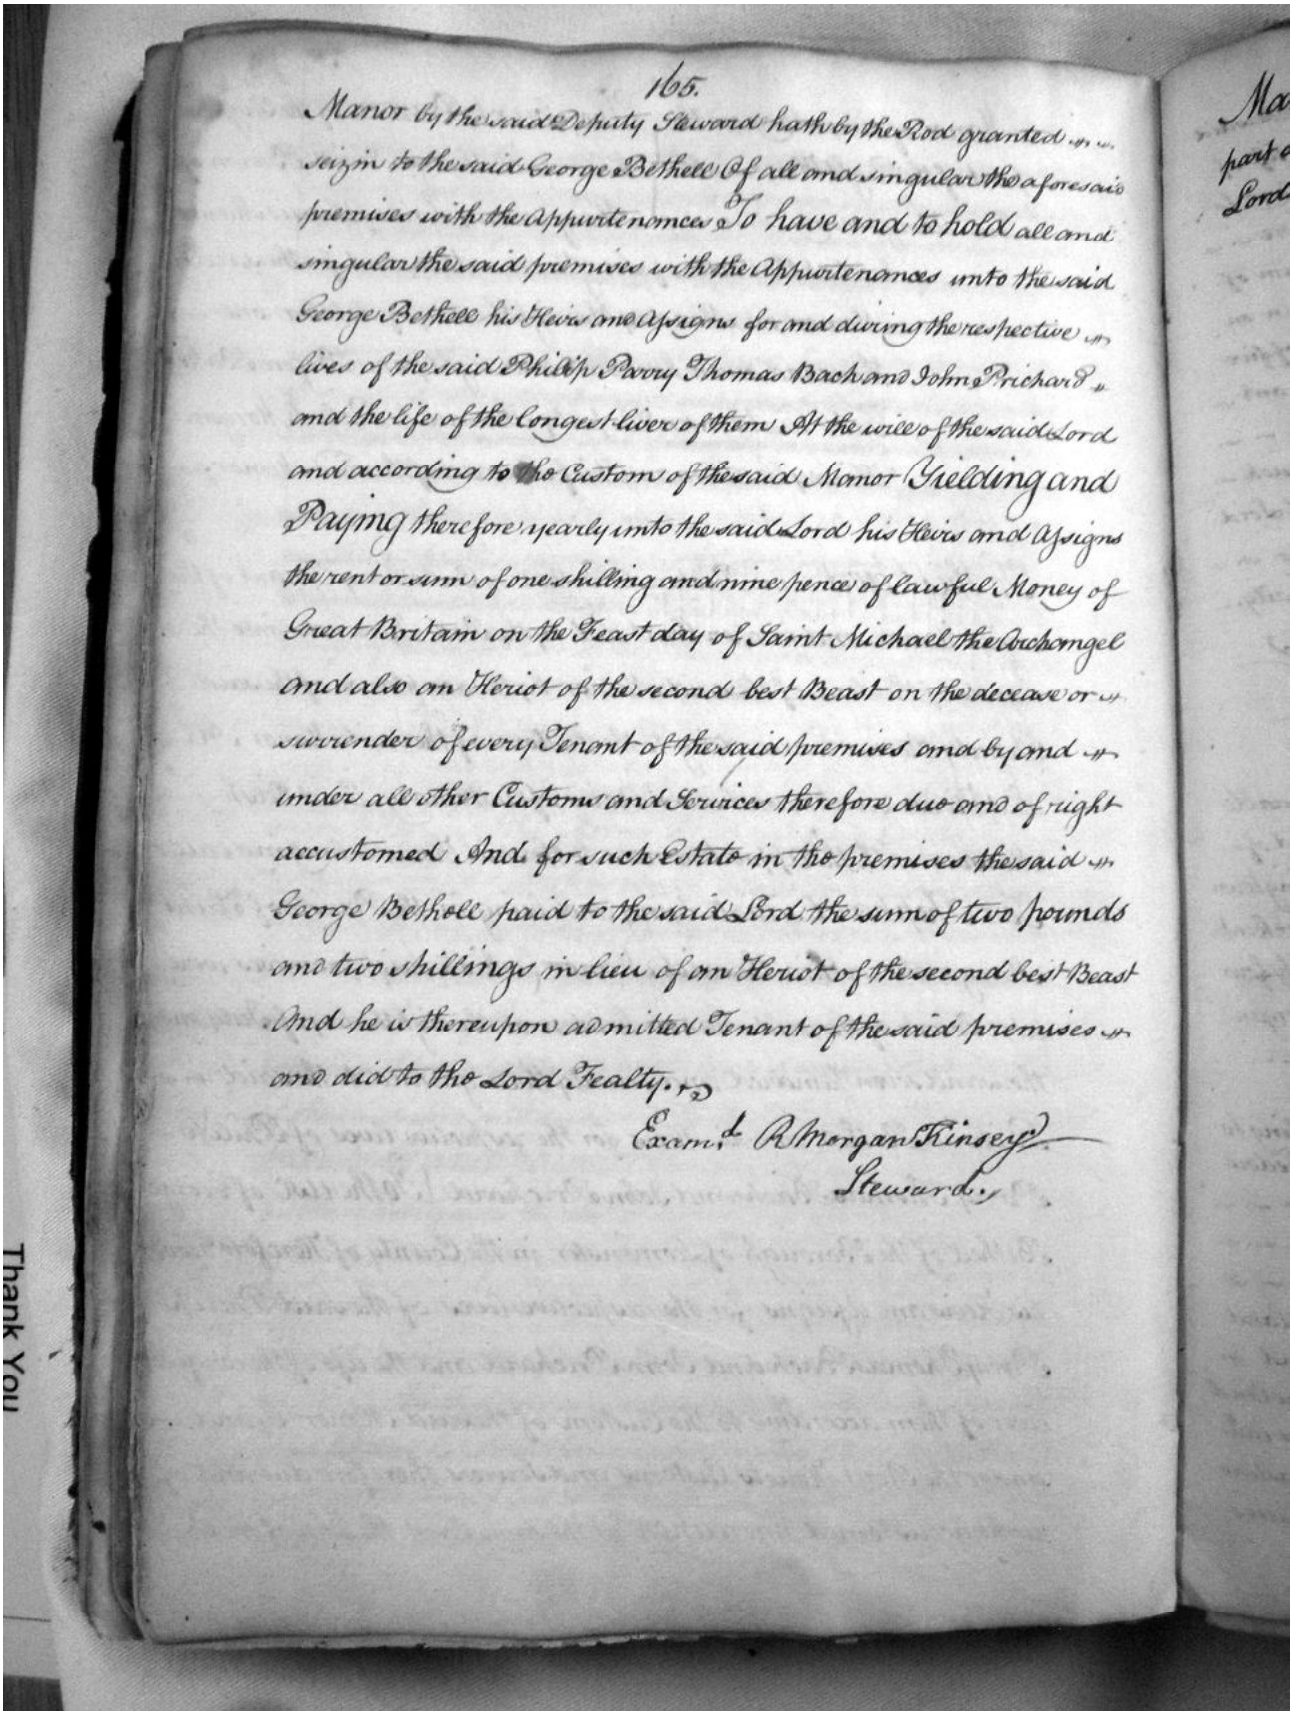 165.
Manor by the said Deputy Steward hath by the Rod granted
seizin to the said George Bethell Of all and singular the aforesaid
premises with the Appurtenances To have and to hold all and
singular the said premises with the Appurtenances unto the said
George Bethell his Heirs and Assigns for and during the respective
lives of the said Philip Parry Thomas Bach and John Prichard
and the life of the longest liver of them At the will of the said Lord
and according to the Custom of the said Manor Yielding and
Paying therefore yearly unto the said Lord his Heirs and Assigns
the rent or sum of one shilling and nine pence of lawful Money of
Great Britain on the Feast day of Saint Michael the Archangel
and also an Heriot of the second best Beast on the decease or
surrender of every Tenant of the said premises and by and
under all other Customs and Services therefore due and of right
accustomed And for such Estate in the premises the said
George Bethell paid to the said Lord the sum of two pounds
and two shillings in lieu of an Heriot of the second best Beast
And he is thereupon admitted Tenant of the said premises
and did to the Lord Fealty.
Exam.d R Morgan Kinsey
Steward.
Ma
part
Lord
Thank You